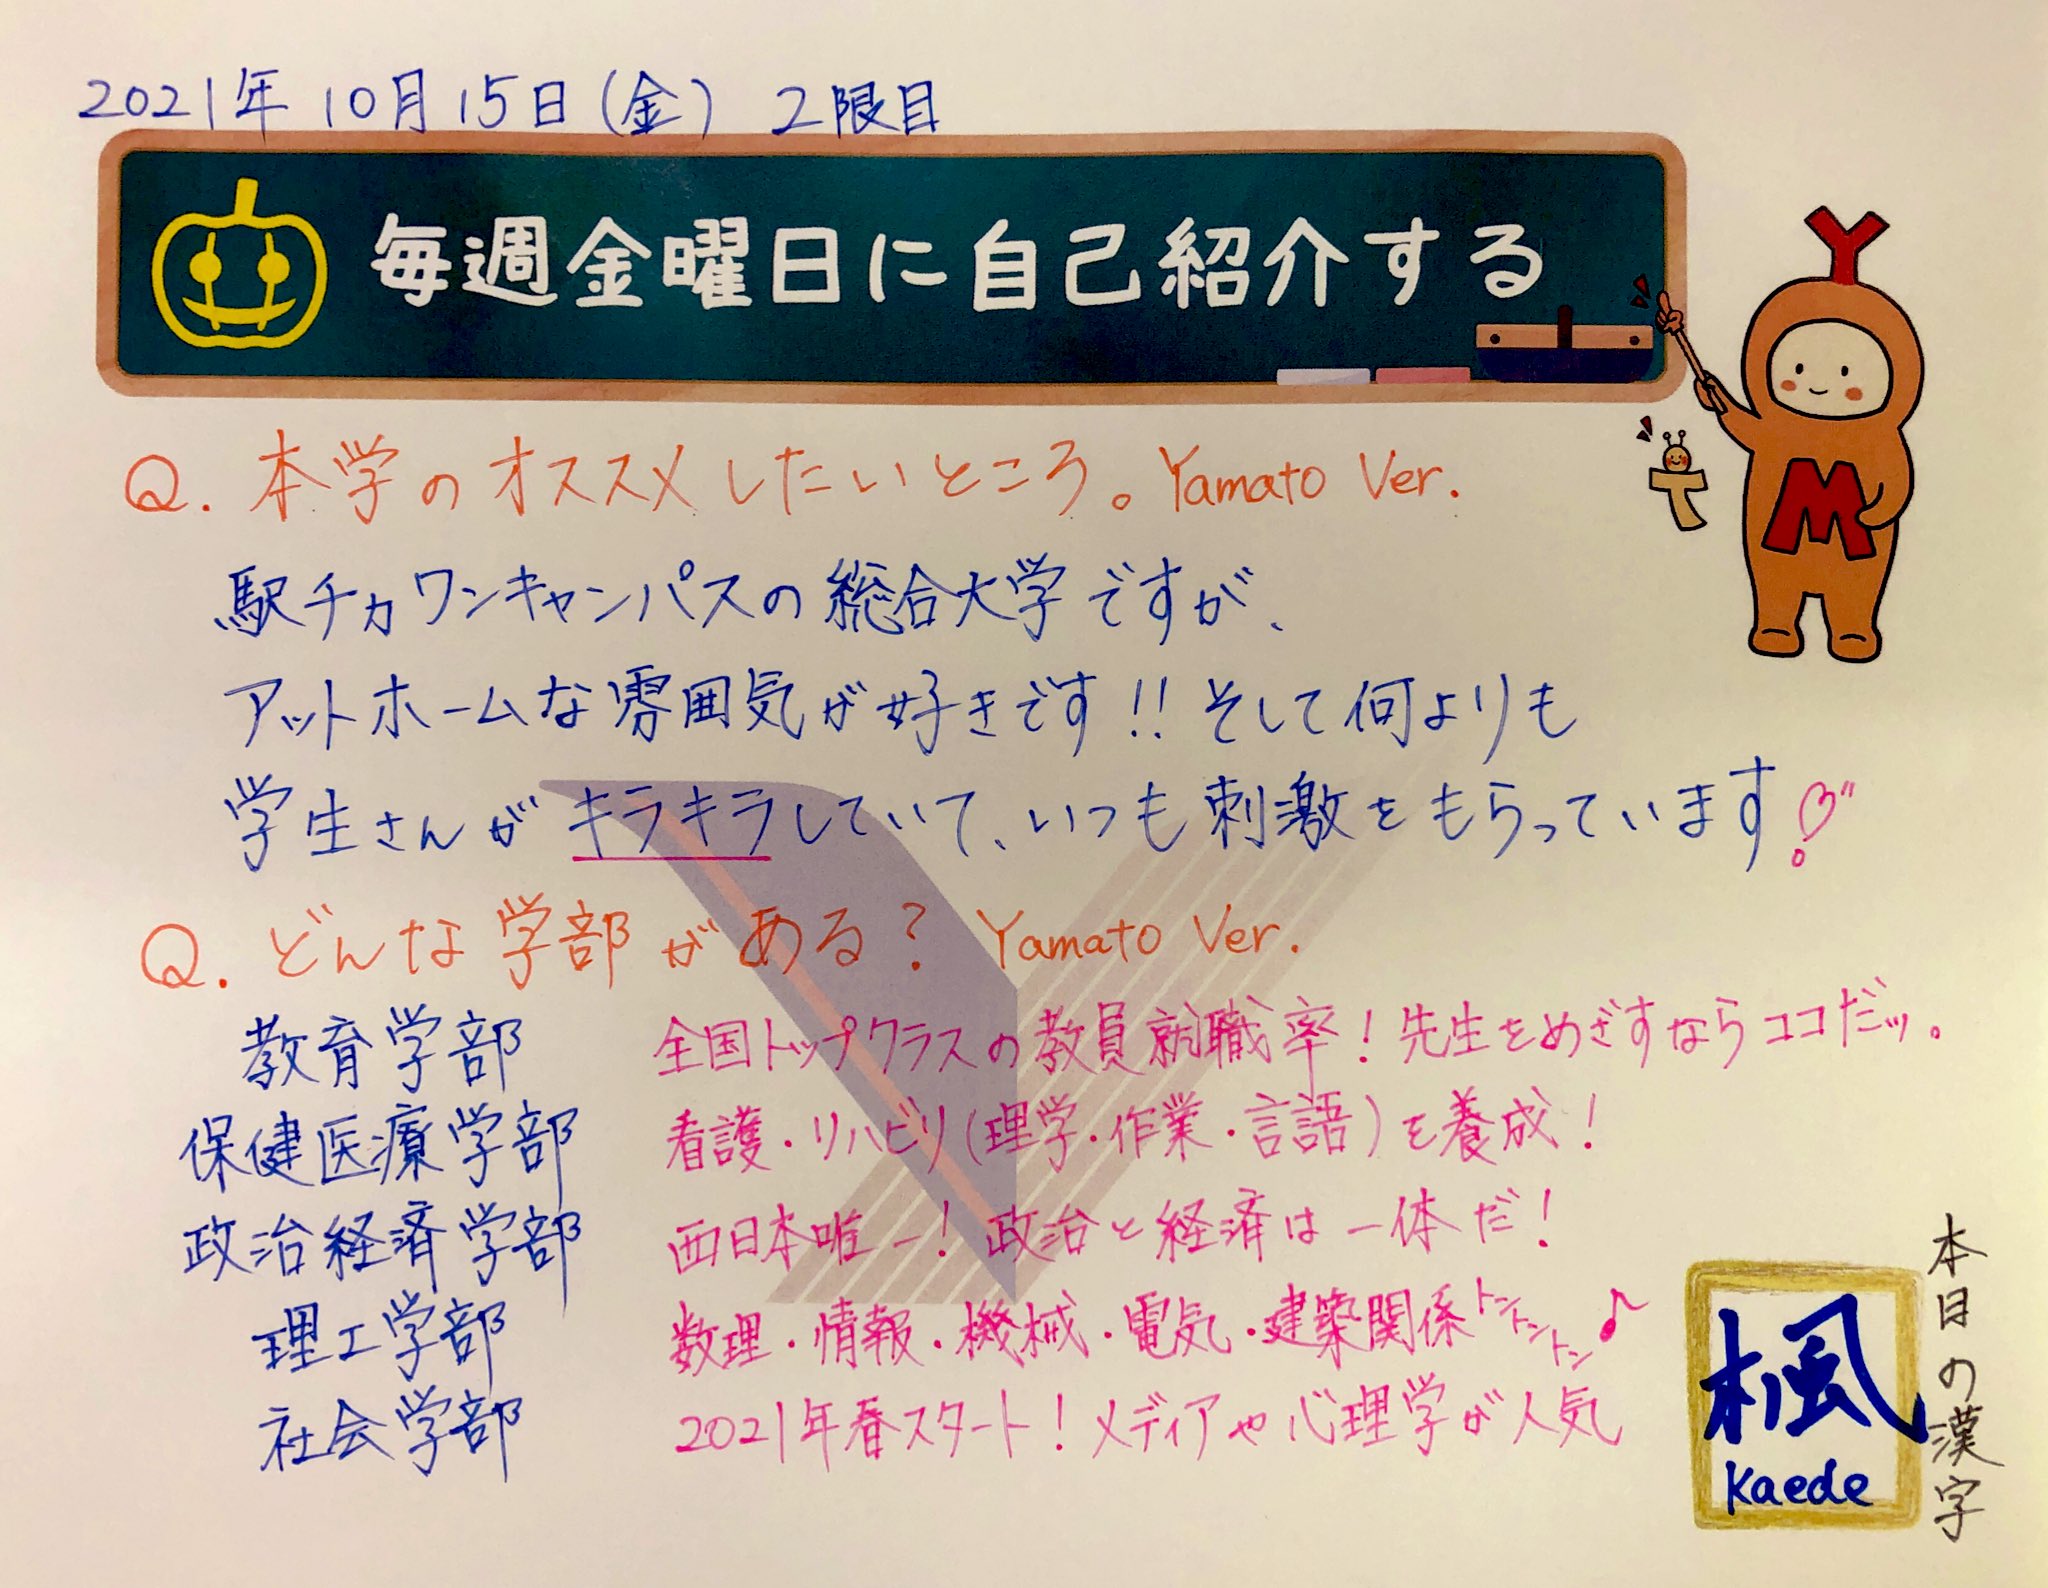 2021年 10月 15日(金) 2限目
毎週金曜日に自己紹介する
Y
M
T
Q. 本学のオススメしたいところ。Yamato Ver.
駅チカワンキャンパスの総合大学ですが、
アットホームな雰囲気が好きです!! そして何よりも
学生さんがキラキラしていて、いつも刺激をもらっています
Q. どんな学部がある? Yamato Ver.
教育学部 全国トップクラスの教員就職率! 先生をめざすならココだッ。
保健医療学部 看護・リハビリ(理学・作業・言語)を養成!
政治経済学部 西日本唯一! 政治と経済は一体だ!
理工学部 数理・情報・機械・電気・建築関係トントントン♪
社会学部 2021年春スタート! メディアや心理学が人気
本日の漢字
楓
Kaede